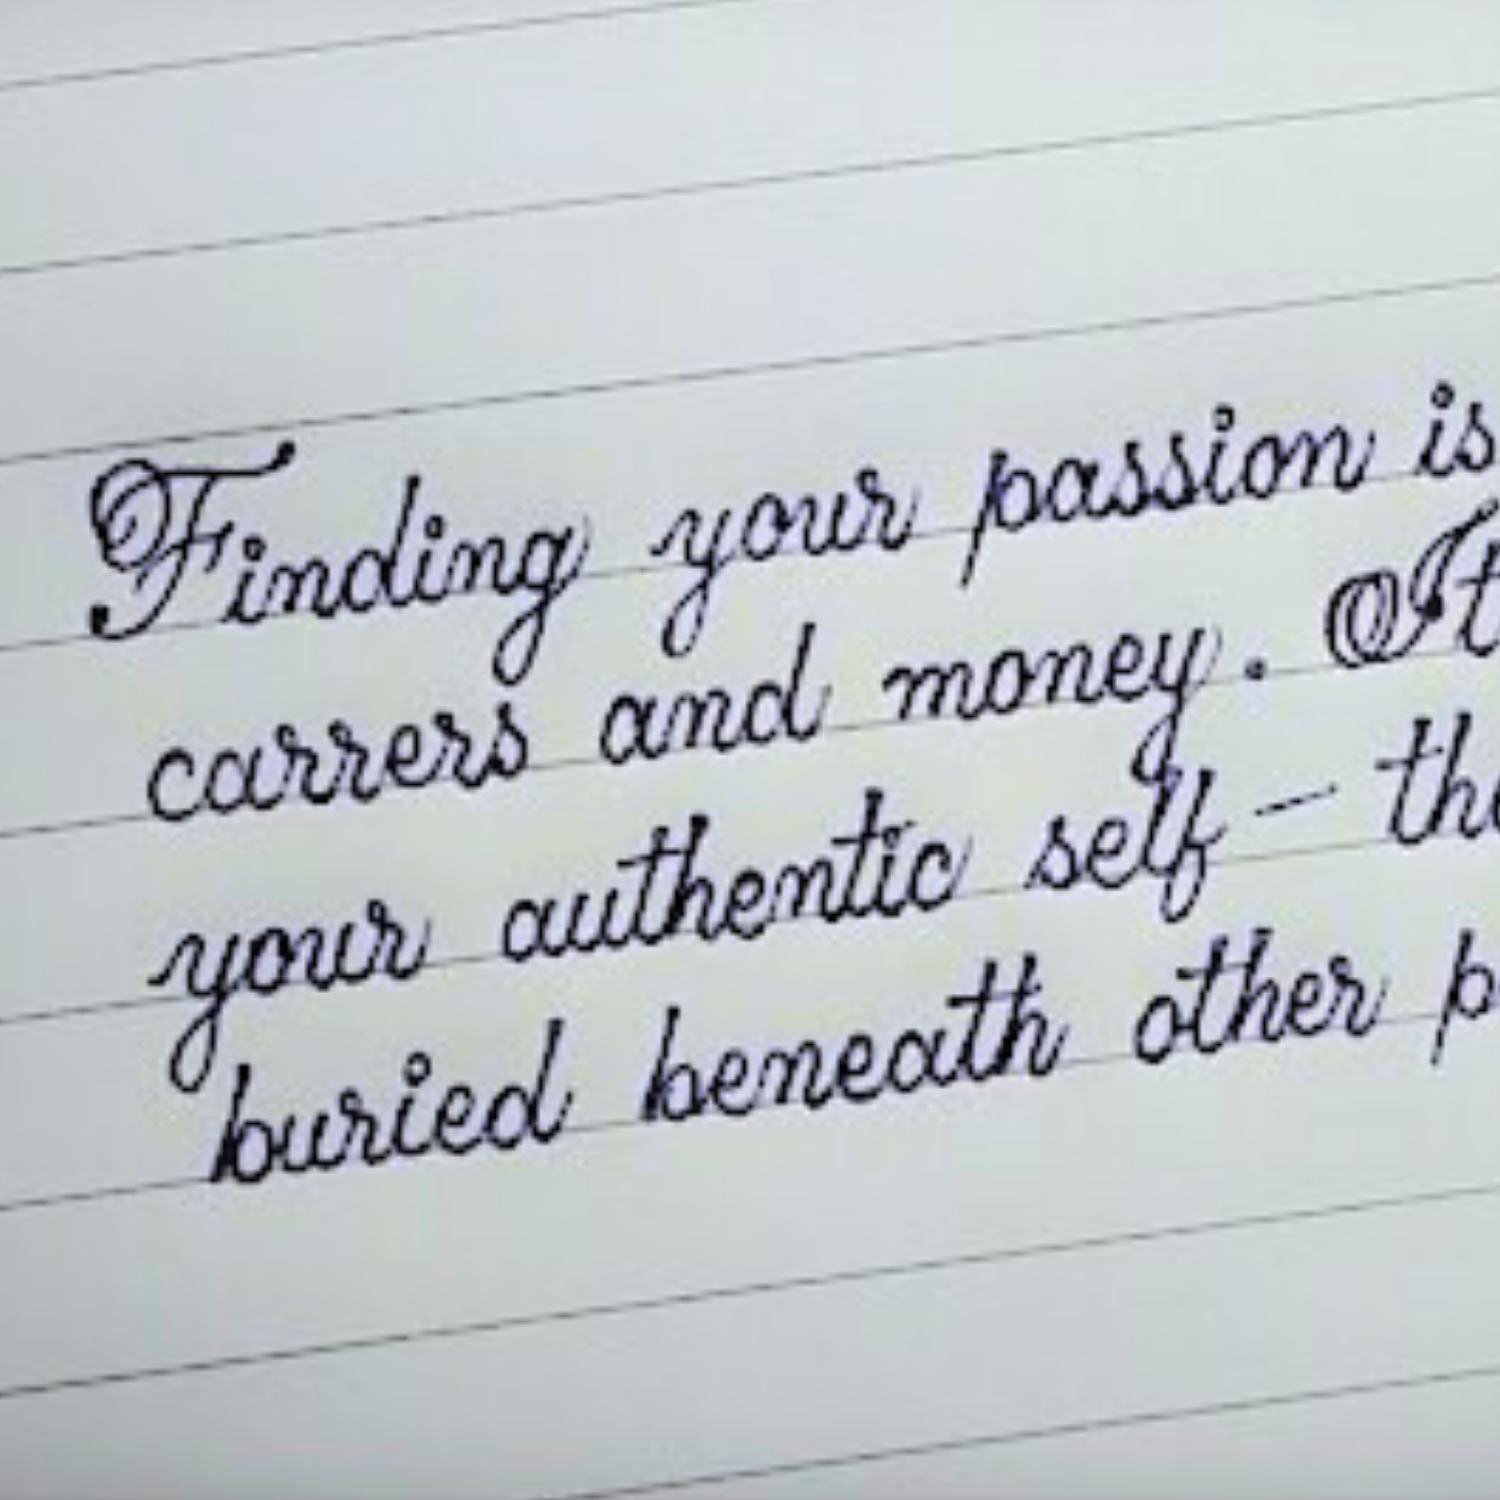 Finding your passion is
carrers and money. It
your authentic self - the
buried beneath other p